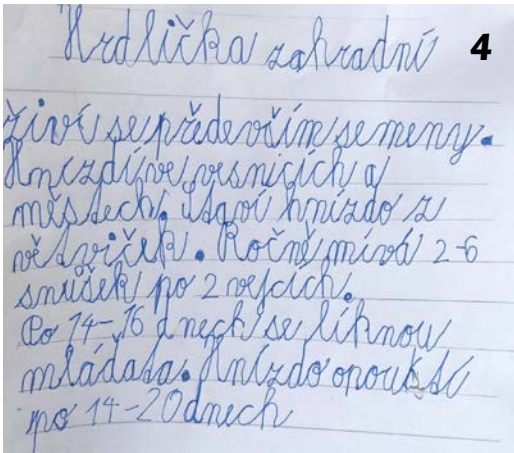 Hrdlička zahradní 4
živí se především semeny.
Hnízdí ve vesnicích a
městech. Staví hnízdo z
větviček. Ročně mívá 2-6
snůšek po 2 vejcích.
Po 14-16 dnech se líhnou
mláďata. Hnízdo opouští
po 14-20 dnech